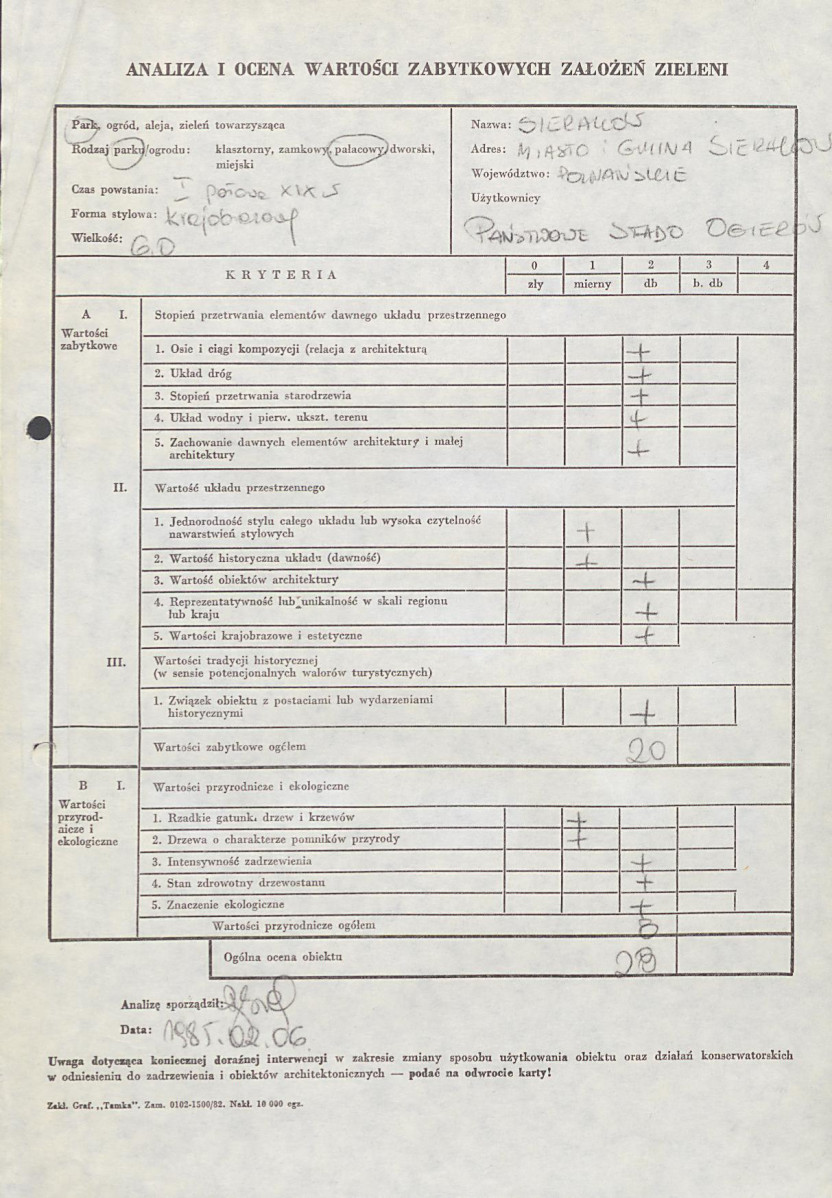 ANALIZA I OCENA WARTOŚCI ZABYTKOWYCH ZAŁOŻEŃ ZIELENI
Park, ogród, aleja, zieleń towarzysząca
Rodzaj parku/ogrodu: klasztorny, zamkowy, pałacowy, dworski,
miejski
Czas powstania: I połowa XIX s
Forma stylowa: krajobrazowy
Wielkość: 6.0
Nazwa: SIERAKÓW
Adres: MIASTO i GMINA SIERAKÓW
Województwo: POZNAŃSKIE
Użytkownicy
PAŃSTWOWE STADO OGIERÓW
KRYTERIA
0 1 2 3 4
zły mierny db b. db
A I. Stopień przetrwania elementów dawnego układu przestrzennego
Wartości
zabytkowe
1. Osie i ciągi kompozycji (relacja z architekturą +
2. Układ dróg +
3. Stopień przetrwania starodrzewia +
4. Układ wodny i pierw. ukszt. terenu +
5. Zachowanie dawnych elementów architektury i małej
architektury +
II. Wartość układu przestrzennego
1. Jednorodność stylu całego układu lub wysoka czytelność
nawarstwień stylowych +
2. Wartość historyczna układu (dawność) +
3. Wartość obiektów architektury +
4. Reprezentatywność lub unikalność w skali regionu
lub kraju +
5. Wartości krajobrazowe i estetyczne +
III. Wartości tradycji historycznej
(w sensie potencjonalnych walorów turystycznych)
1. Związek obiektu z postaciami lub wydarzeniami
historycznymi +
Wartości zabytkowe ogółem 20
B I. Wartości przyrodnicze i ekologiczne
Wartości
przyrod-
nicze i
ekologiczne
1. Rzadkie gatunki drzew i krzewów +
2. Drzewa o charakterze pomników przyrody +
3. Intensywność zadrzewienia +
4. Stan zdrowotny drzewostanu +
5. Znaczenie ekologiczne +
Wartości przyrodnicze ogółem 8
Ogólna ocena obiektu 28
Analizę sporządził:
Data: 1985.02.06
Uwaga dotycząca koniecznej doraźnej interwencji w zakresie zmiany sposobu użytkowania obiektu oraz działań konserwatorskich
w odniesieniu do zadrzewienia i obiektów architektonicznych — podać na odwrocie karty!
Zakł. Graf. „Tamka". Zam. 0102-1500/82. Nakł. 10 000 egz.